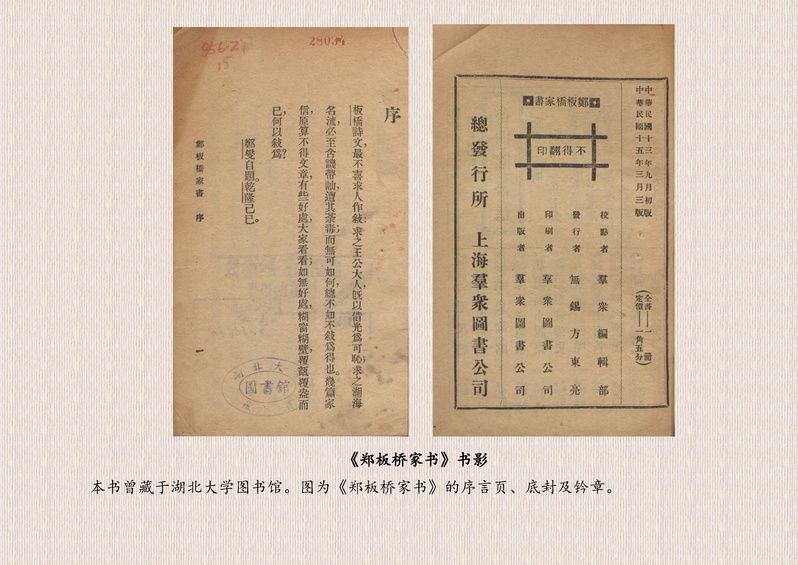 856.27
15
28034
序
板橋詩文，最不喜求人作敍。求之王公大人，旣以借光爲可恥；求之湖海
名流，必至含譏帶訕，遭其荼毒，而無可如何，總不如不敍爲得也。幾篇家
信，原算不得文章，有些好處，大家看看；如無好處，糊窗糊壁，覆瓿覆盎而
已，何以敍爲？
鄭燮自題。乾隆己巳。
鄭板橋家書　序
一
北大
圖書館
中華民國十三年九月初版
中華民國十五年三月三版
（全書一冊
定價一角五分）
鄭板橋家書
不得翻印
校點者　羣衆編輯部
發行者　無錫方東亮
印刷者　羣衆圖書公司
出版者　羣衆圖書公司
總發行所　上海羣衆圖書公司
《郑板桥家书》书影
本书曾藏于湖北大学图书馆。图为《郑板桥家书》的序言页、底封及钤章。